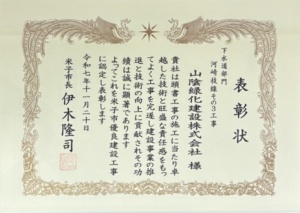 表彰状
下水道部門
河崎枝線その3工事
山陰緑化建設株式会社 様
貴社は頭書工事の施工に当たり卓
越した技術と旺盛な責任感をもっ
てよく工事を完遂し建設事業の推
進と技術の向上に貢献されその功
績は誠に顕著であります
よってこれを米子市優良建設工事
に認定し表彰します
令和七年十一月二十日
米子市長 伊木隆司